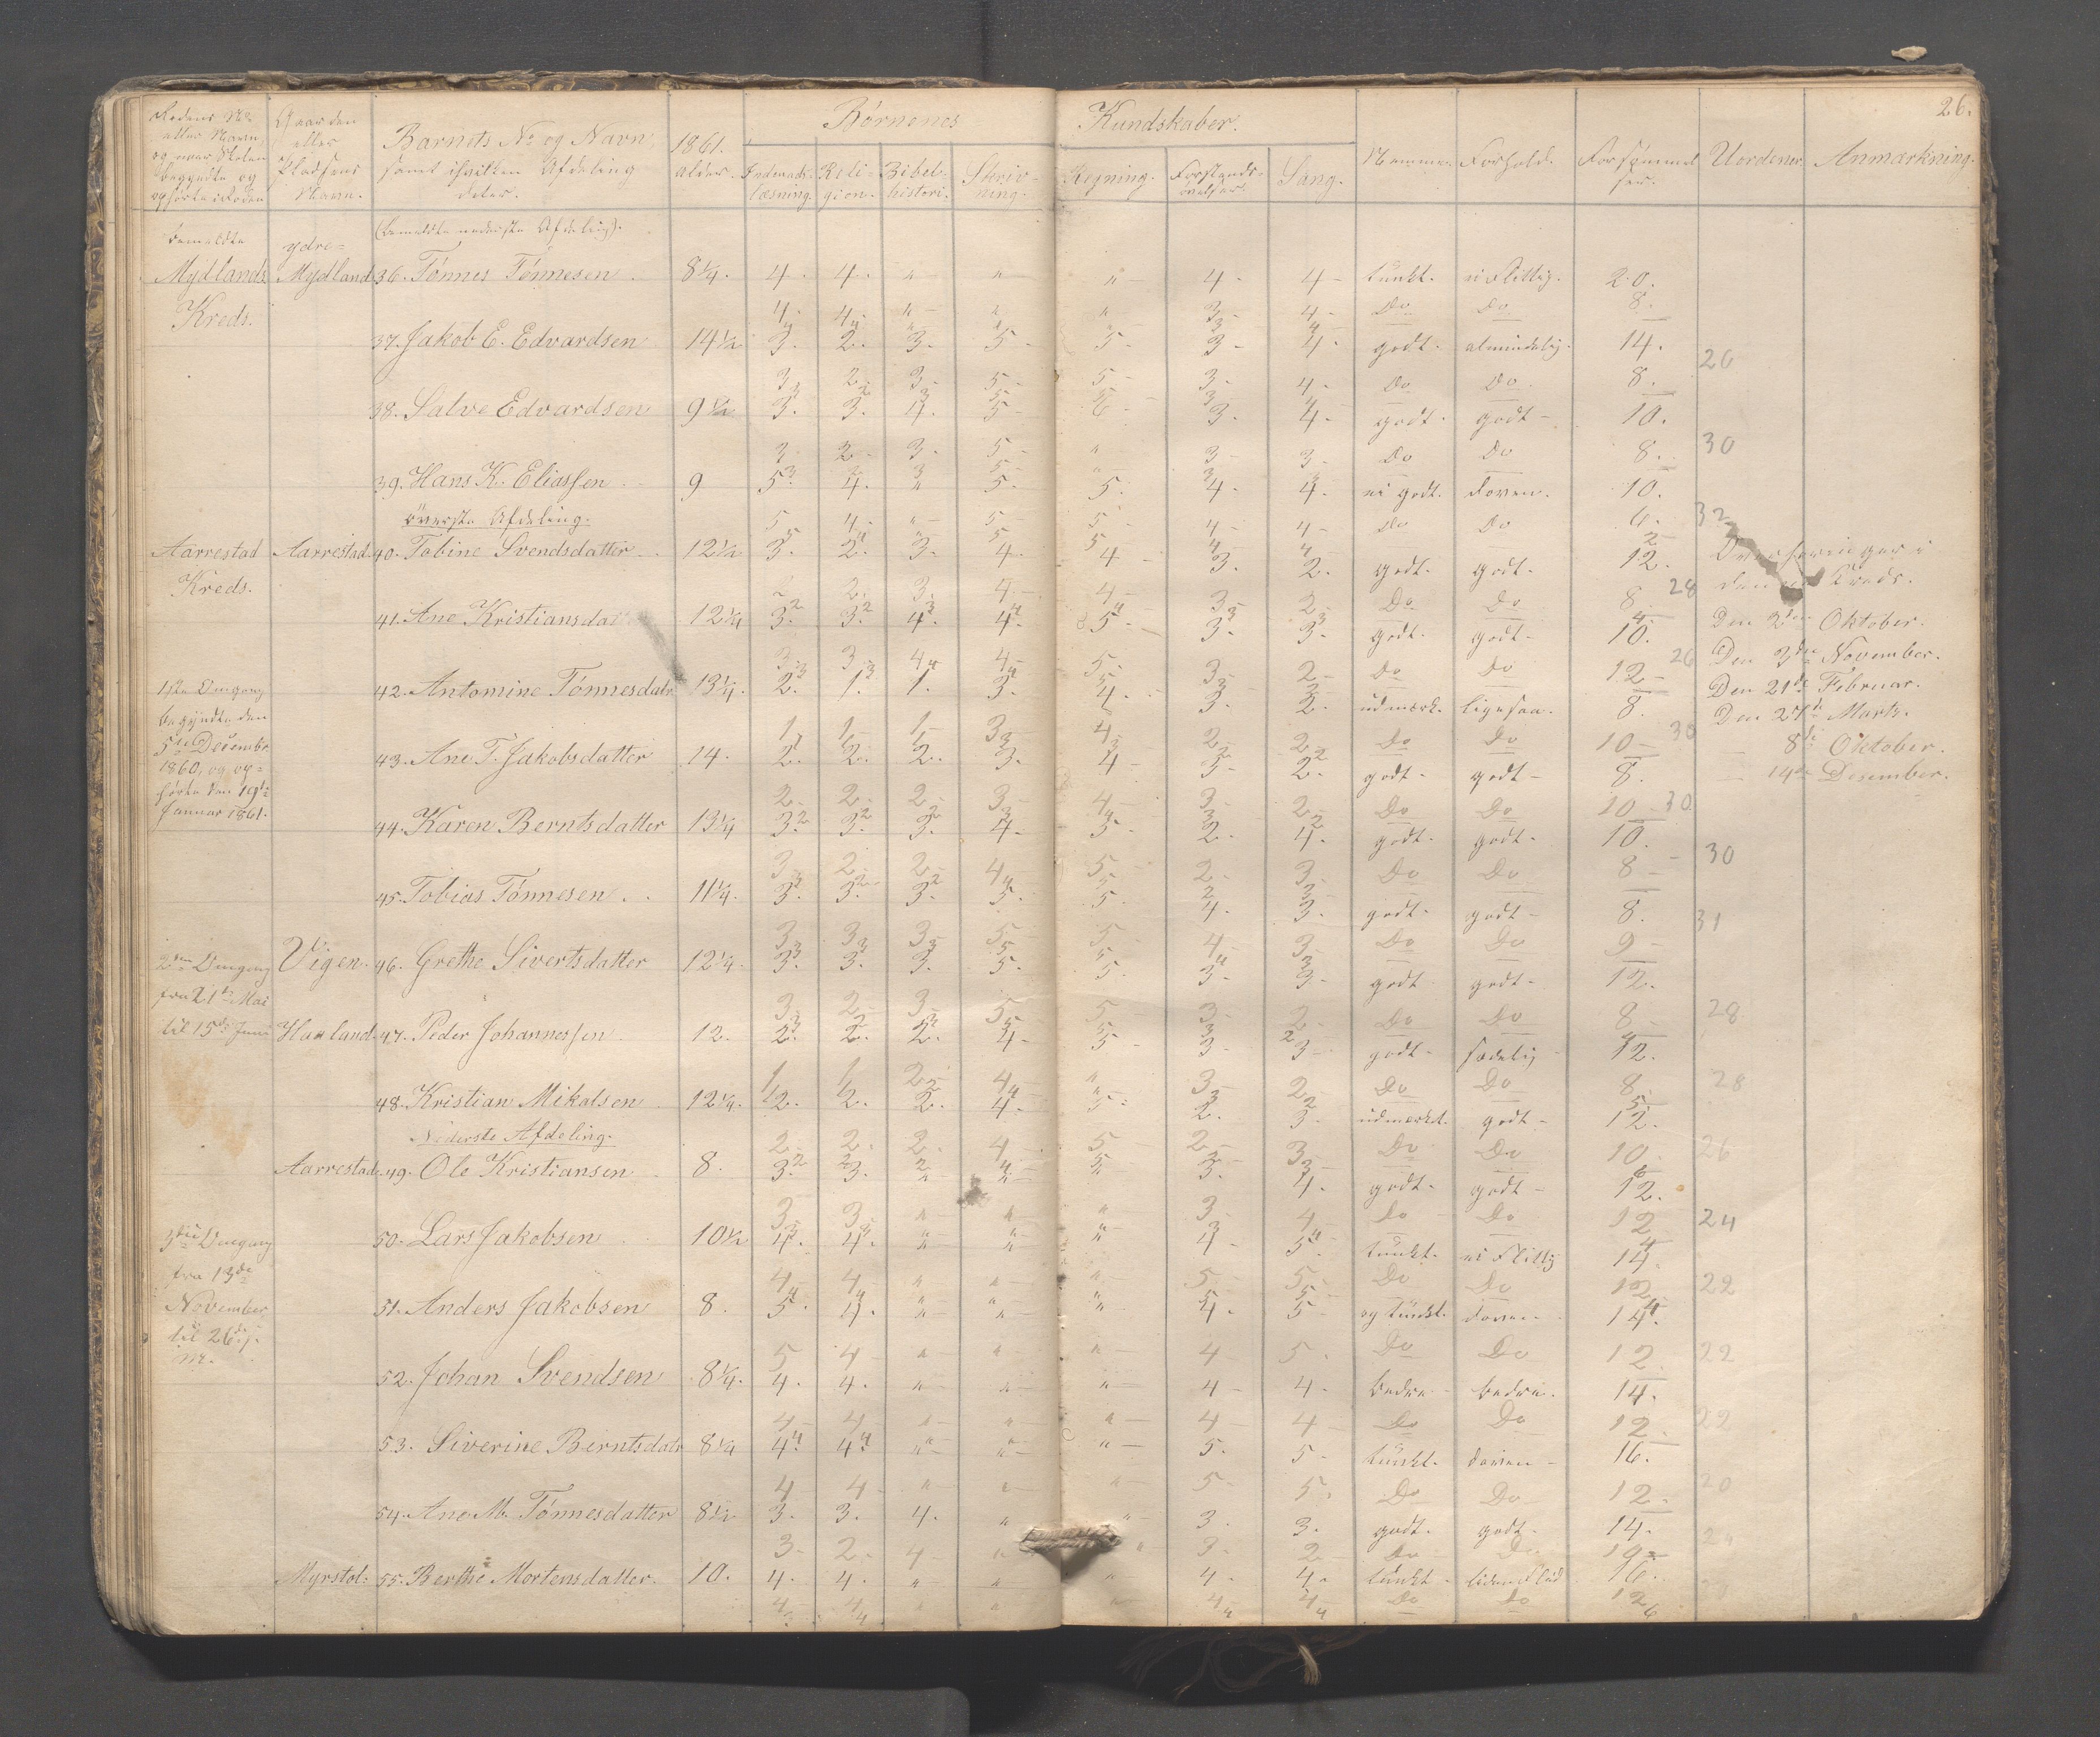 26.
Rodens No
eller Navn,
og naar Skolen
begyndte og
ophørte i Roden
Gaarden
eller
Pladsens
Navn.
Barnets No og Navn,
samt ihvilken Afdeling
det er.
1861.
alder.
Børnenes Kundskaber.
Indenads-
læsning.
Reli-
gion.
Bibel-
histori.
Skriv-
ning.
Regning.
Forstands-
øvelser.
Sang.
Nemme. Forhold. Forsømmel
ser. Uordener. Anmærkning.
(bemeldte nederste Afdeling).
bemeldte ydre=
Mydlands Mydland 36. Tønnes Tønnesen 8¼. 4. 4. " " " 4. 4 tünkt. ei flittig. 20.
Kreds. 4. 4. " " " 3. 4. Do Do 8.
37. Jakob E. Edvardsen 14½ 3. 2. 3. 5. 5. 3. 4. godt. almindelig. 14. 26
3. 2. 3. 5. 5. 3. 4. Do Do 8.
38. Salve Edvardsen 9½ 3. 3. 4. 5. 3. 4. godt. godt. 10.
3. 2. 3. 5. " 3. 3. Do Do 8. 30
39. Hans K. Eliassen 9 5. 4. " 5. 5. 4. 4. ei godt. doven. 10.
øverste Afdeling. 5 4 " 5 5 4 4 Do Do 6. 32
Aarrestad Aarrestad. 40. Tobine Svendsdatter 12½ 3. 2. 3. 4. 4 3. 2. godt. godt. 12.
i
Kreds. 2 2. 3. 4. 4. 3. 2. Do Do 8. 28 Kreds.
41. Ane Kristiansda 12¼ 3. 3. 4. 4. 5. 3. 3. godt. godt. 10. Den 2den Oktober.
3. 3. 4. 4. 5. 3. 2. Do Do 12 26 Den 3de November.
1ste Omgang 42. Antomine Tønnesdatr 13¼. 2. 1. 1. 3. 4. 3. 2. udmærk. ligesaa. 8. Den 21de Februar.
begyndte den 1 1 1 3 4 2 2 Do Do 10 30 Den 27de Marts.
5te Decembr. 43. Ane T. Jakobsdatter 14. 2. 2. 2. 3. 4 3. 2. godt. godt. 8. 8de Oktober.
1860, og op= 2 2 2 3 4 3 2 Do Do 10 30 14de Desember.
hørte den 19de
Januar 1861. 44. Karen Berntsdatter 13¼ 3. 3. 3. 4. 5. 2. 4. godt. godt. 10.
3. 2. 2. 4. 5 2 3 Do Do 8 30
45. Tobias Tønnesen 11¼. 3. 3. 3. 5. 5. 4. 3. godt. godt. 8. 31
3 3 3 5 5 4 3 Do Do 9
2den Omgang Vigen. 46. Grethe Sivertsdatter 12¼. 3. 3. 3. 5. 5. 3. 3. godt godt. 12.
fra 21de Mai 3 2 3 5 5 3 2 Do Do 8 28
til 15de Juni Haaland. 47. Peder Johannessen 12. 2. 2. 2. 4. 5. 3. 3 godt. sædelig 12.
1 1 2 4 " 3 2 Do Do 8 28
48. Kristian Mikalsen 12¼. 2. 2. 2. 4. 5. 2. 3. udmærket. godt. 12.
Nederste Afdeling. 2 2 2 4 5 2 3 Do Do 10 26
Aarrestad. 49. Ole Kristiansen 8. 3. 3. " " " 3. 4. godt. godt. 12.
3 3 " " " 3 4 Do Do 12 24
3die Omgang 50. Lars Jakobsen 10½ 4. 4. " " " 4 5. tünkt. ei flittig 14.
fra 13de 4 4 " " " 5 5 Do Do 12 22
November 51. Anders Jakobsen 8. 5. 4. " " " 4. 5 og tünkt. doven. 14.
til 26de j. 5 4 " " " 4 5 Do Do 12 22
52. Johan Svendsen 8¼. 4. 4. " " " 4 4. bedre bedre. 14.
4 4 " " " 4 4 Do Do 12 22
53. Siverine Berntsdatr 8¼ 4. 4. " " " 5. 5. tünkt. doven 16.
4 4 " " " 5 5 Do Do 12. 20
54. Ane M. Tønnesdatter 8½ 3. 3. 4. " " 3. 3. godt. godt. 14.
3. 2. 4 " " 3. 2 Do Do
Myrstol. 55. Berthe Mortensdatter. 10. 4. 4. " " " 4. 4. tünkt liden Flid 16.
4 4 " " " 4 4 Do Do 12